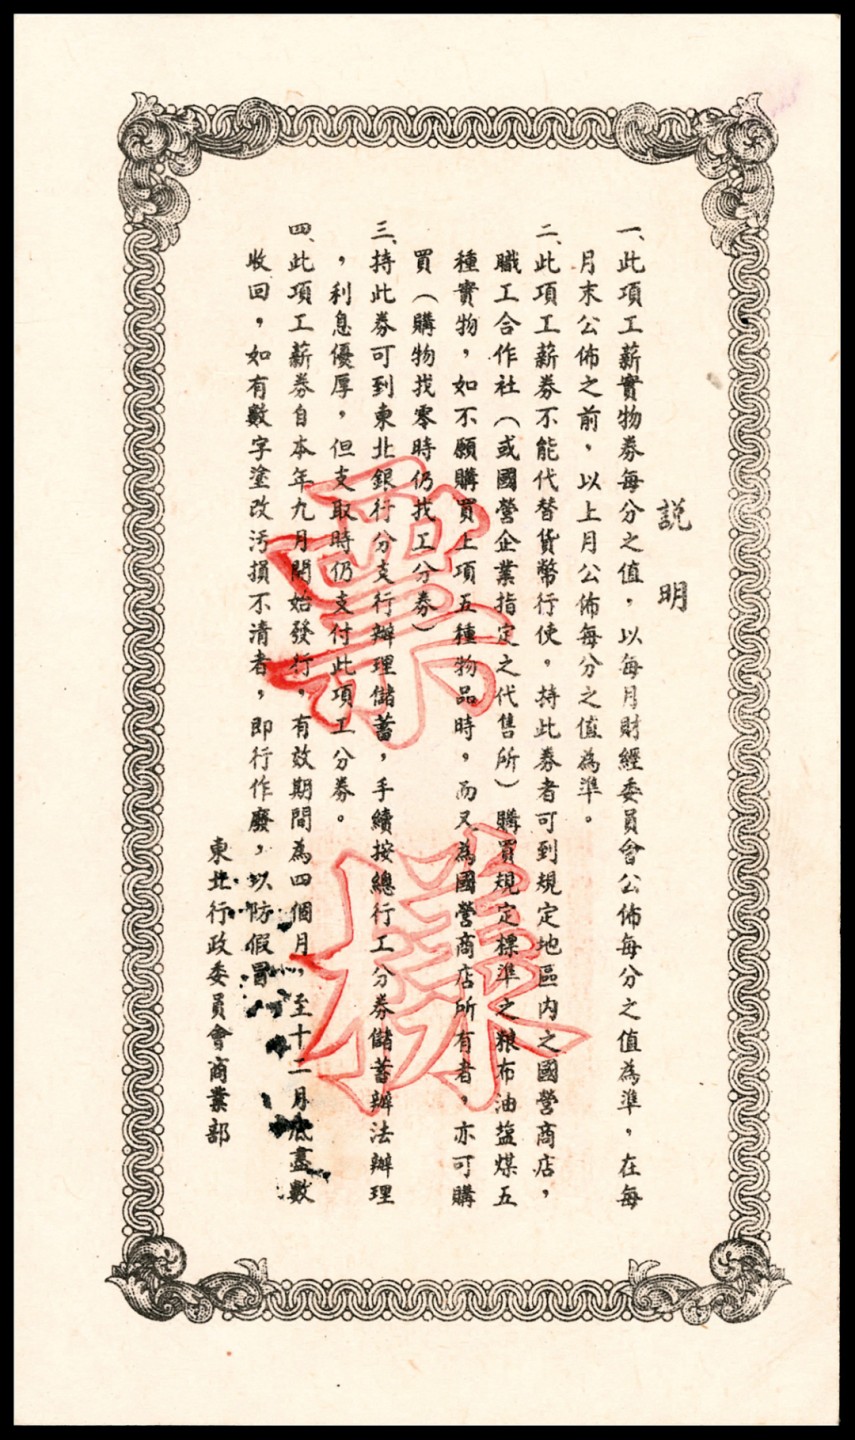 説明
一、此項工薪實物券每分之值，以每月財經委員會公佈每分之值為準，在每
月末公佈之前，以上月公佈每分之值為準。
二、此項工薪券不能代替貨幣行使，持此券者可到規定地區內之國營商店，
職工合作社（或國營企業指定之代售所）購買規定標準之粮布油盐煤五
種實物，如不願購買上項五種物品時，而又為國營商店所有者，亦可購
買（購物找零時仍找工分券）
三、持此券可到東北銀行分支行辦理儲蓄，手續按總行工分券儲蓄辦法辦理
，利息優厚，但支取時仍支付此項工分券。
四、此項工薪券自本年九月開始發行，有效期間為四個月，至十二月底盡數
收回，如有數字塗改污損不清者，即行作廢，以防假冒
東北行政委員會商業部
票樣